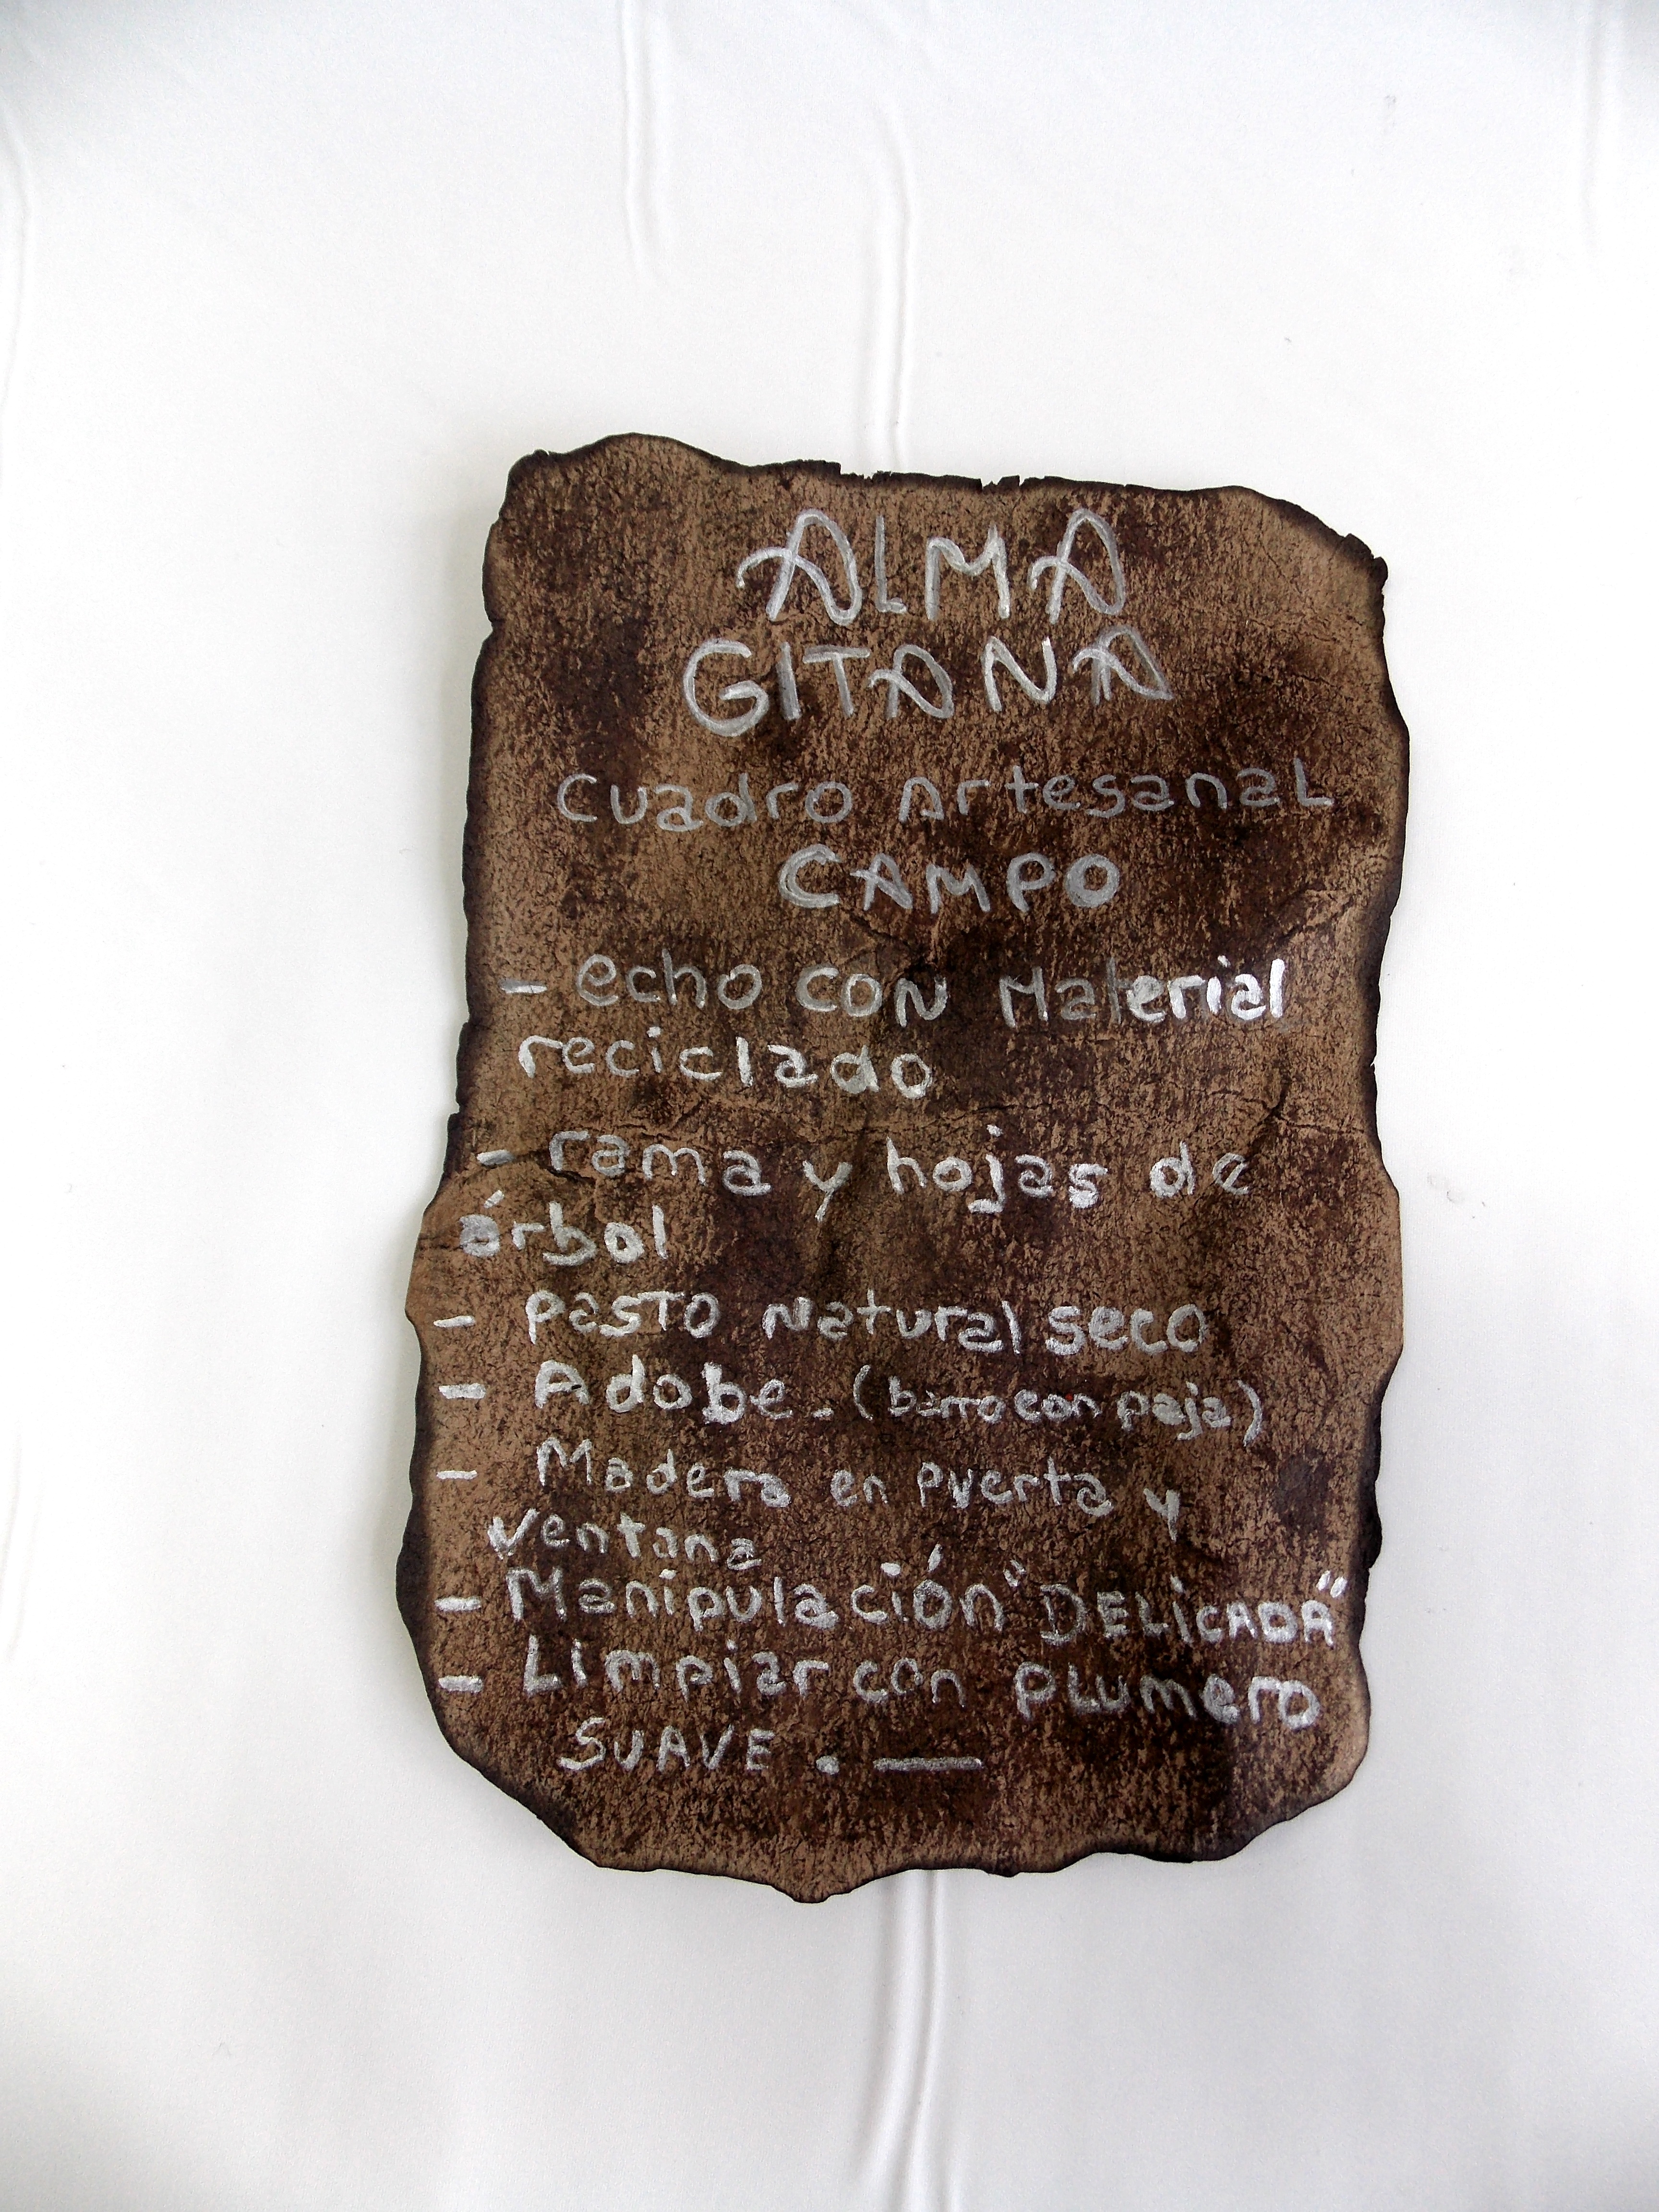 ALMA
GITANA
cuadro ArtesanaL
CAMPO
- echo con Material
reciclado
- rama y hojas de
árbol
- PasTO Natural seco
- Adobe.- (barro con paja)
- Madera en puerta y
ventana
- Manipulación "DELiCADA"
- Limpiar con pLumero
SUAVE . —